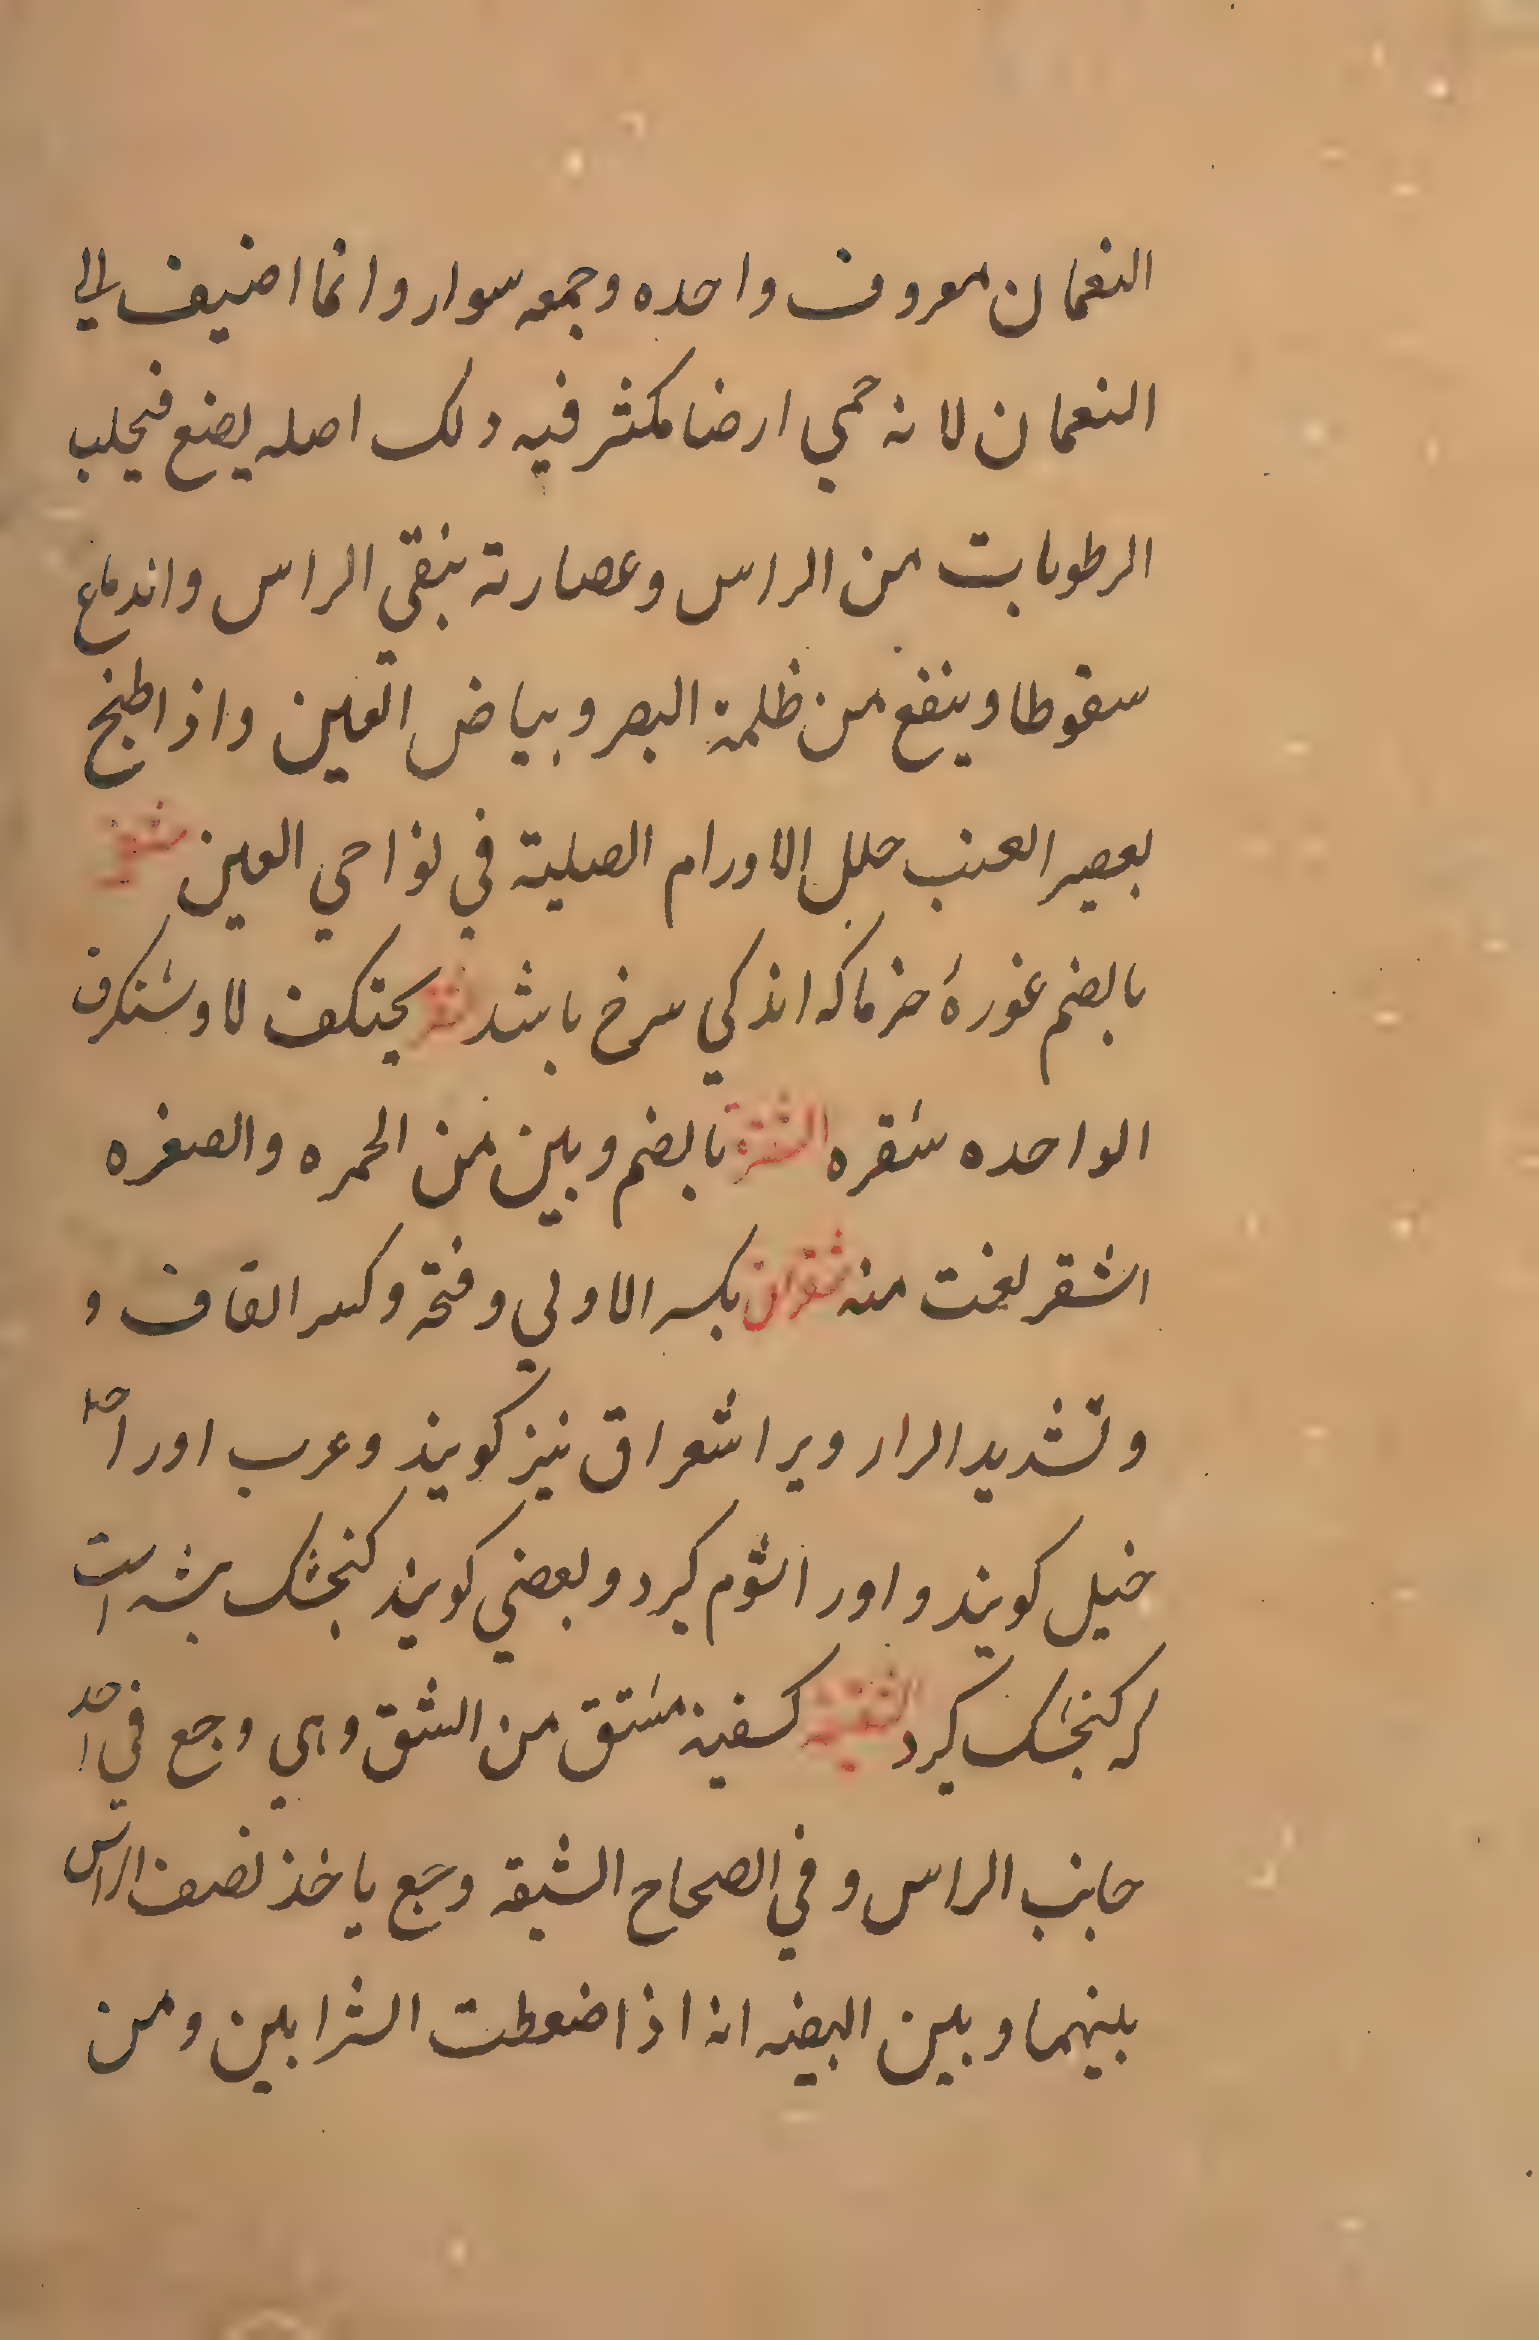 النعمان معروف واحده وجمعه سوار وانما اضيف الي
النعمان لانه حمي ارضا مكثر فيه ذلك اصله يضع فيجلب
الرطوبات من الراس وعصارته ينقي الراس واندماع
سقوطا وينفع من ظلمة البصر وبياض العين واذا طبخ
بعصير العنب حلل الاورام الصلبة في نواحي العين
بالضم غورۀ خرما كه اندكي سرخ باشد شقر بحتكف لا وشنكرف
الواحده شقره الشقرة بالضم وبين من الحمره والصفره
اشقر لغت منه شقراق بكسر الاولي وفتحه وكسر القاف و
وتشديد الرار ويرا شعراق نيز كويند وعرب اورا
خيل كويند و اورا شوم كيرد وبعضي كويند كنجشك بيشه است
كه كنجشك كيرد الشقيقه كسفينة مشتق من الشق وهي وجع في احد
جانب الراس وفي الصحاح الشيقه وجع ياخذ نصف الراس
بينهما وبين البيضه انه اذا ضعطت الشرابين ومن